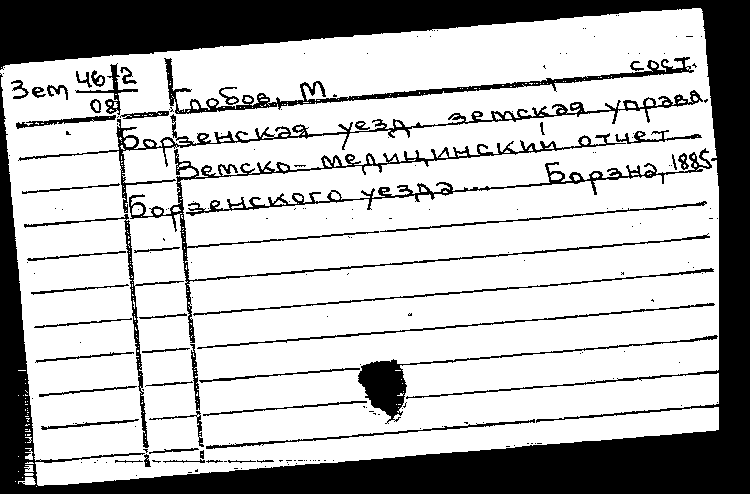 Зем 46-2
08
Глобов, М. сост.
Борзенская уезд. земская управа.
Земско-медицинский отчет
Борзенского уезда... Борзна, 1885-